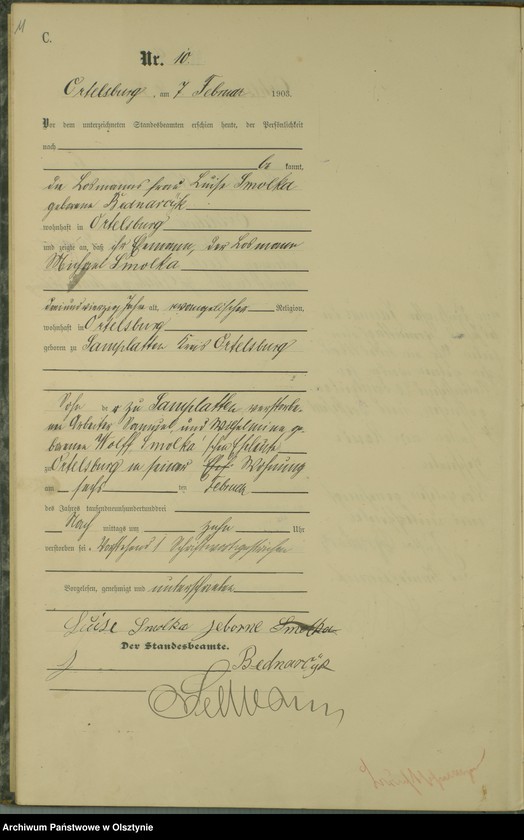 C.
Nr. 10.
Ortelsburg, am 7 Februar 1903.
Vor dem unterzeichneten Standesbeamten erschien heute, der Persönlichkeit
nach
be kannt,
die Losmanns frau Luise Smolka
geborene Bednarczyk
wohnhaft in Ortelsburg
und zeigte an, daß ihr Ehemann, der Losmann
Michael Smolka
dreiundvierzig Jahre alt, evangelischer Religion,
wohnhaft in Ortelsburg
geboren zu Samplatten Kreis Ortelsburg
Sohn der zu Samplatten verstorbe-
nen Arbeiter Samuel und Wilhelmine ge-
borenen Wolff, Smolka'schen Eheleute
zu Ortelsburg in seiner Wohnung
am sechs ten Februar
des Jahres tausendneunhundertunddrei
Nach mittags um zehn Uhr
verstorben sei. Vorstehend 1 Schriftwort gestrichen
Vorgelesen, genehmigt und unterschrieben
Luise Smolka geborne Smolka
Der Standesbeamte.
Bednarczyk
Archiwum Państwowe w Olsztynie